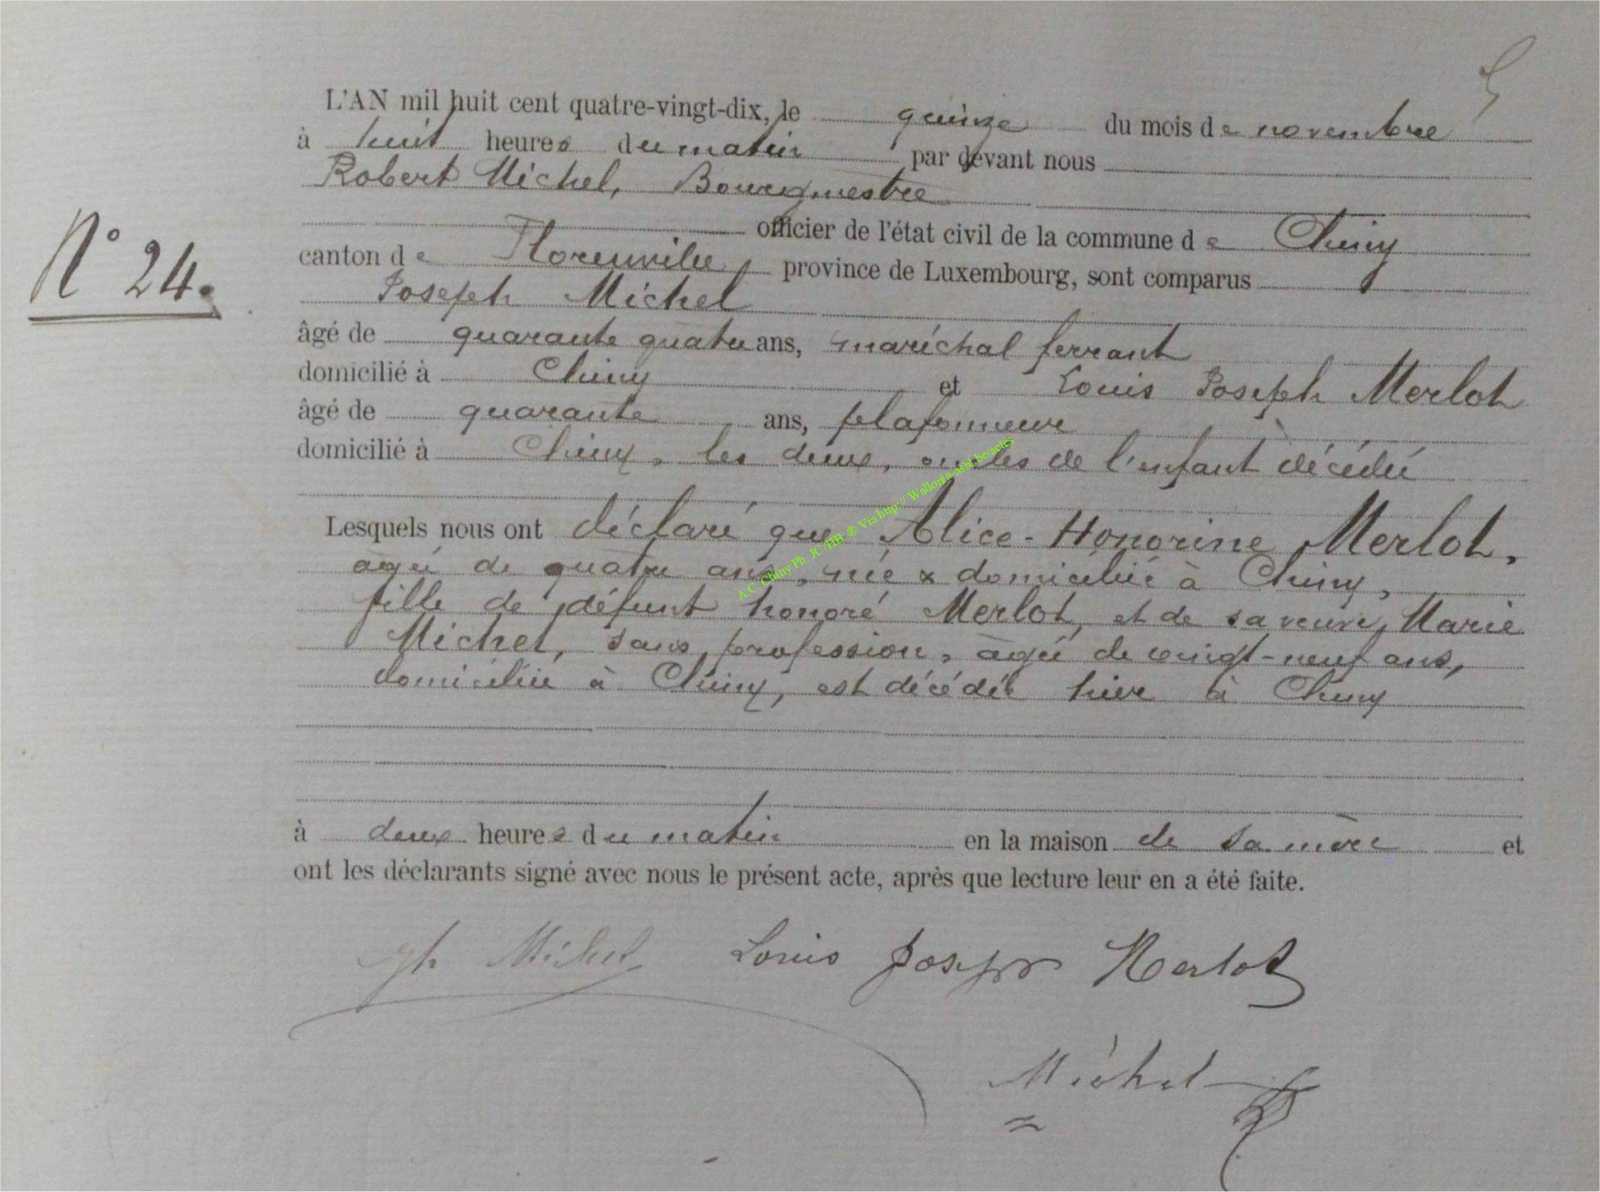 L'AN mil huit cent quatre-vingt-dix, le quinze du mois de novembre
à huit heures du matin par devant nous
Robert Michel, Bourgmestre
officier de l'état civil de la commune de Chiny
N° 24.
canton de Florenville, province de Luxembourg, sont comparus
Joseph Michel
âgé de quarante quatre ans, maréchal ferrant
domicilié à Chiny et Louis Joseph Merlot
âgé de quarante ans, plafonneur
domicilié à Chiny, les deux, oncles de l'enfant décédé
Lesquels nous ont déclaré que Alice-Honorine Merlot,
agée de quatre ans, née & domiciliée à Chiny,
fille de défunt honoré Merlot, et de sa veuve, Marie
Michel, sans profession, àgée de vingt-neuf ans,
domiciliée à Chiny, est décédée hier à Chiny
à deux heures du matin en la maison de sa mère et
ont les déclarants signé avec nous le présent acte, après que lecture leur en a été faite.
Jh Michel Louis Joseph Merlot
Michel